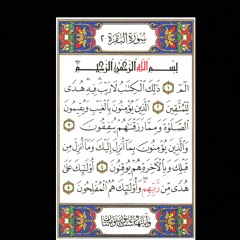 سُورَةُ البَقَرَةِ ٢
بِسْمِ اللَّهِ الرَّحْمَٰنِ الرَّحِيمِ
الٓمٓ ١ ذَٰلِكَ الْكِتَابُ لَا رَيْبَ فِيهِ هُدًى
لِّلْمُتَّقِينَ ٢ الَّذِينَ يُؤْمِنُونَ بِالْغَيْبِ وَيُقِيمُونَ
الصَّلَوٰةَ وَمِمَّا رَزَقْنَٰهُمْ يُنفِقُونَ ٣
وَالَّذِينَ يُؤْمِنُونَ بِمَا أُنزِلَ إِلَيْكَ وَمَا أُنزِلَ مِن
قَبْلِكَ وَبِالْآخِرَةِ هُمْ يُوقِنُونَ ٤ أُولَٰئِكَ عَلَىٰ
هُدًى مِّن رَّبِّهِمْ وَأُولَٰئِكَ هُمُ الْمُفْلِحُونَ ٥